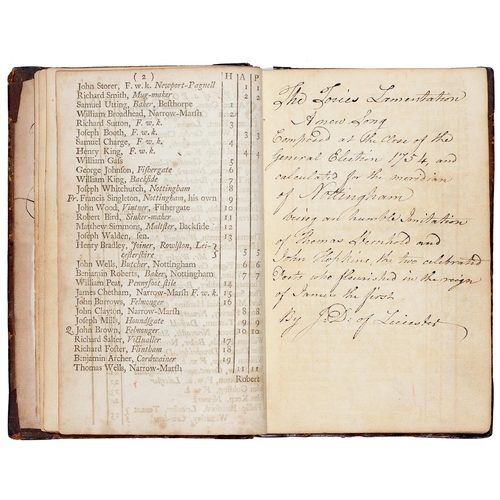 ( 2 ) H A P
John Storer, F. w. k. Newport-Pagnell 1 1
Richard Smith, Mug-maker 2 2
Samuel Utting, Baker, Besthorpe 1
William Broadhead, Narrow-Marsh 2
Richard Sutton, F. w. k. 3
Joseph Booth, F. w. k. 3 3
Samuel Charge, F. w. k. 4
Henry King, F. w. k. 4 4
William Gass 5
George Johnson, Fishergate 6
William King, Backside 7
Joseph Whitchurch, Nottingham 8
Fr. Francis Singleton, Nottingham, his own 9
John Wood, Vintner, Fishergate 10
Robert Bird, Sinker-maker 11
Matthew Simmons, Malster, Backside 12
Joseph Walden, sen. 13
Henry Bradley, Joiner, Rowlston, Lei-
cestershire 5 5
John Wells, Butcher, Nottingham 6 6
Benjamin Roberts, Baker, Nottingham 7 7
William Peat, Pennyfoot-stile 14
James Chetham, Narrow-Marsh F. w. k. 15
John Burrows, Felmonger 16
John Clayton, Narrow-Marsh 8 8
Joseph Mills, Houndsgate 9 9
Q John Brown, Felmonger 10 10
Richard Salter, Victualler 17
Richard Foster, Flintham 18
Benjamin Archer, Cordwainer 19
Thomas Wells, Narrow-Marsh 11 11
Robert
The Tories Lamentation
A new Song
Composed at the Close of the
General Election 1754, and
calculated for the meridian
of Nottingham
being an humble Imitation
of Thomas Sternhold and
John Hopkins, the two celebrated
Poets who flourished in the reign
of James the first
By J: D: of Leicester